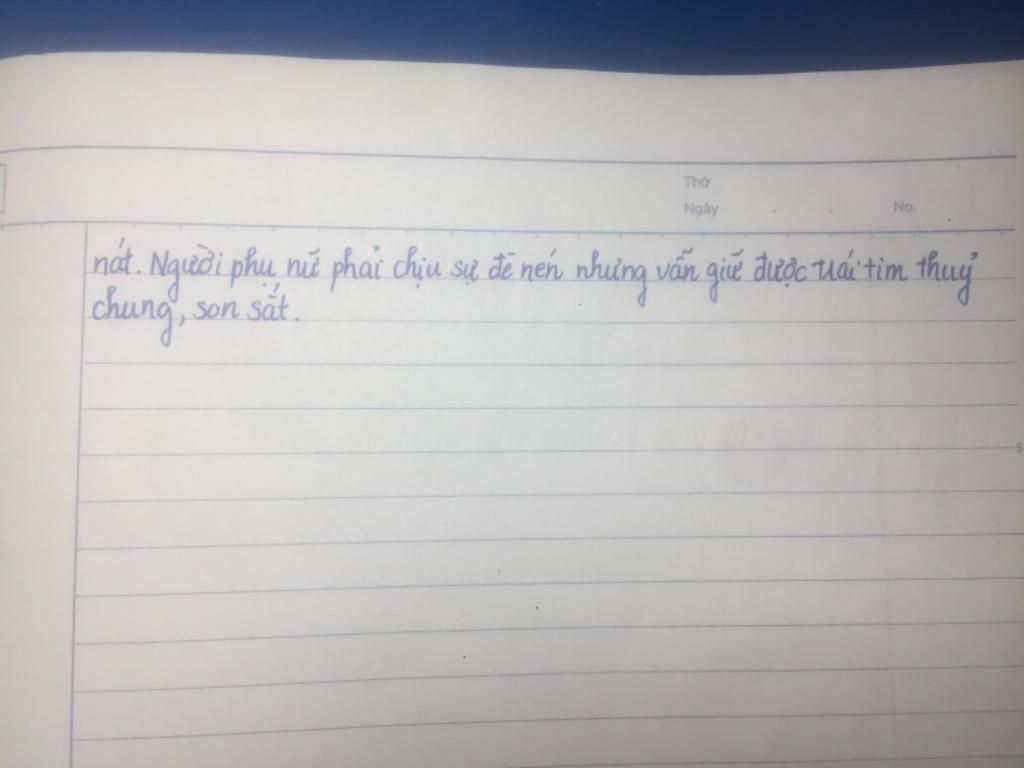 Thứ
Ngày . . No.
nát. Người phụ nữ phải chịu sự đè nén nhưng vẫn giữ được trái tim thuỷ
chung, son sắt.